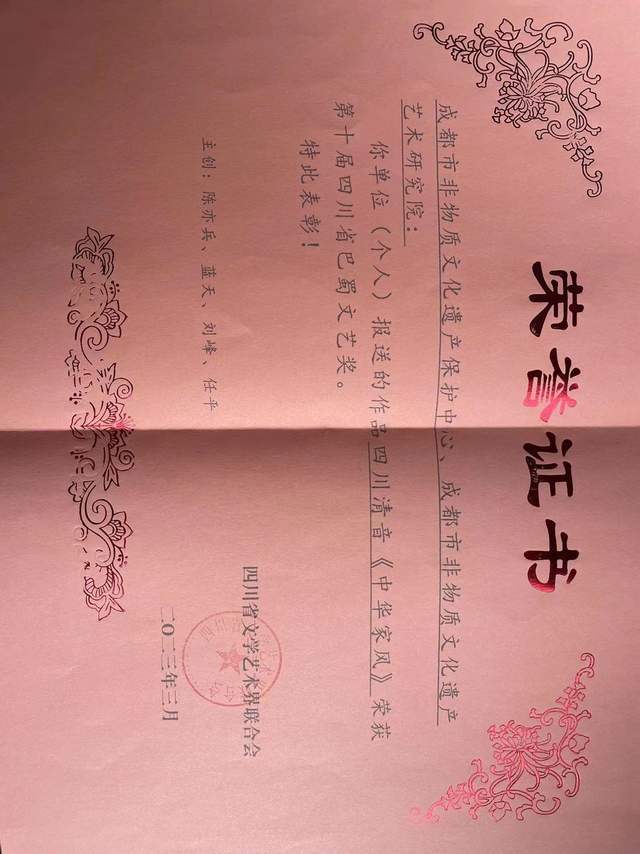 荣誉证书
成都市非物质文化遗产保护中心、成都市非物质文化遗产
艺术研究院：
你单位（个人）报送的作品四川清音《中华家风》荣获
第十届四川省巴蜀文艺奖。
特此表彰！
主创：陈亦兵、蓝天、刘峰、任平
四川省文学艺术界联合会
二〇二三年三月